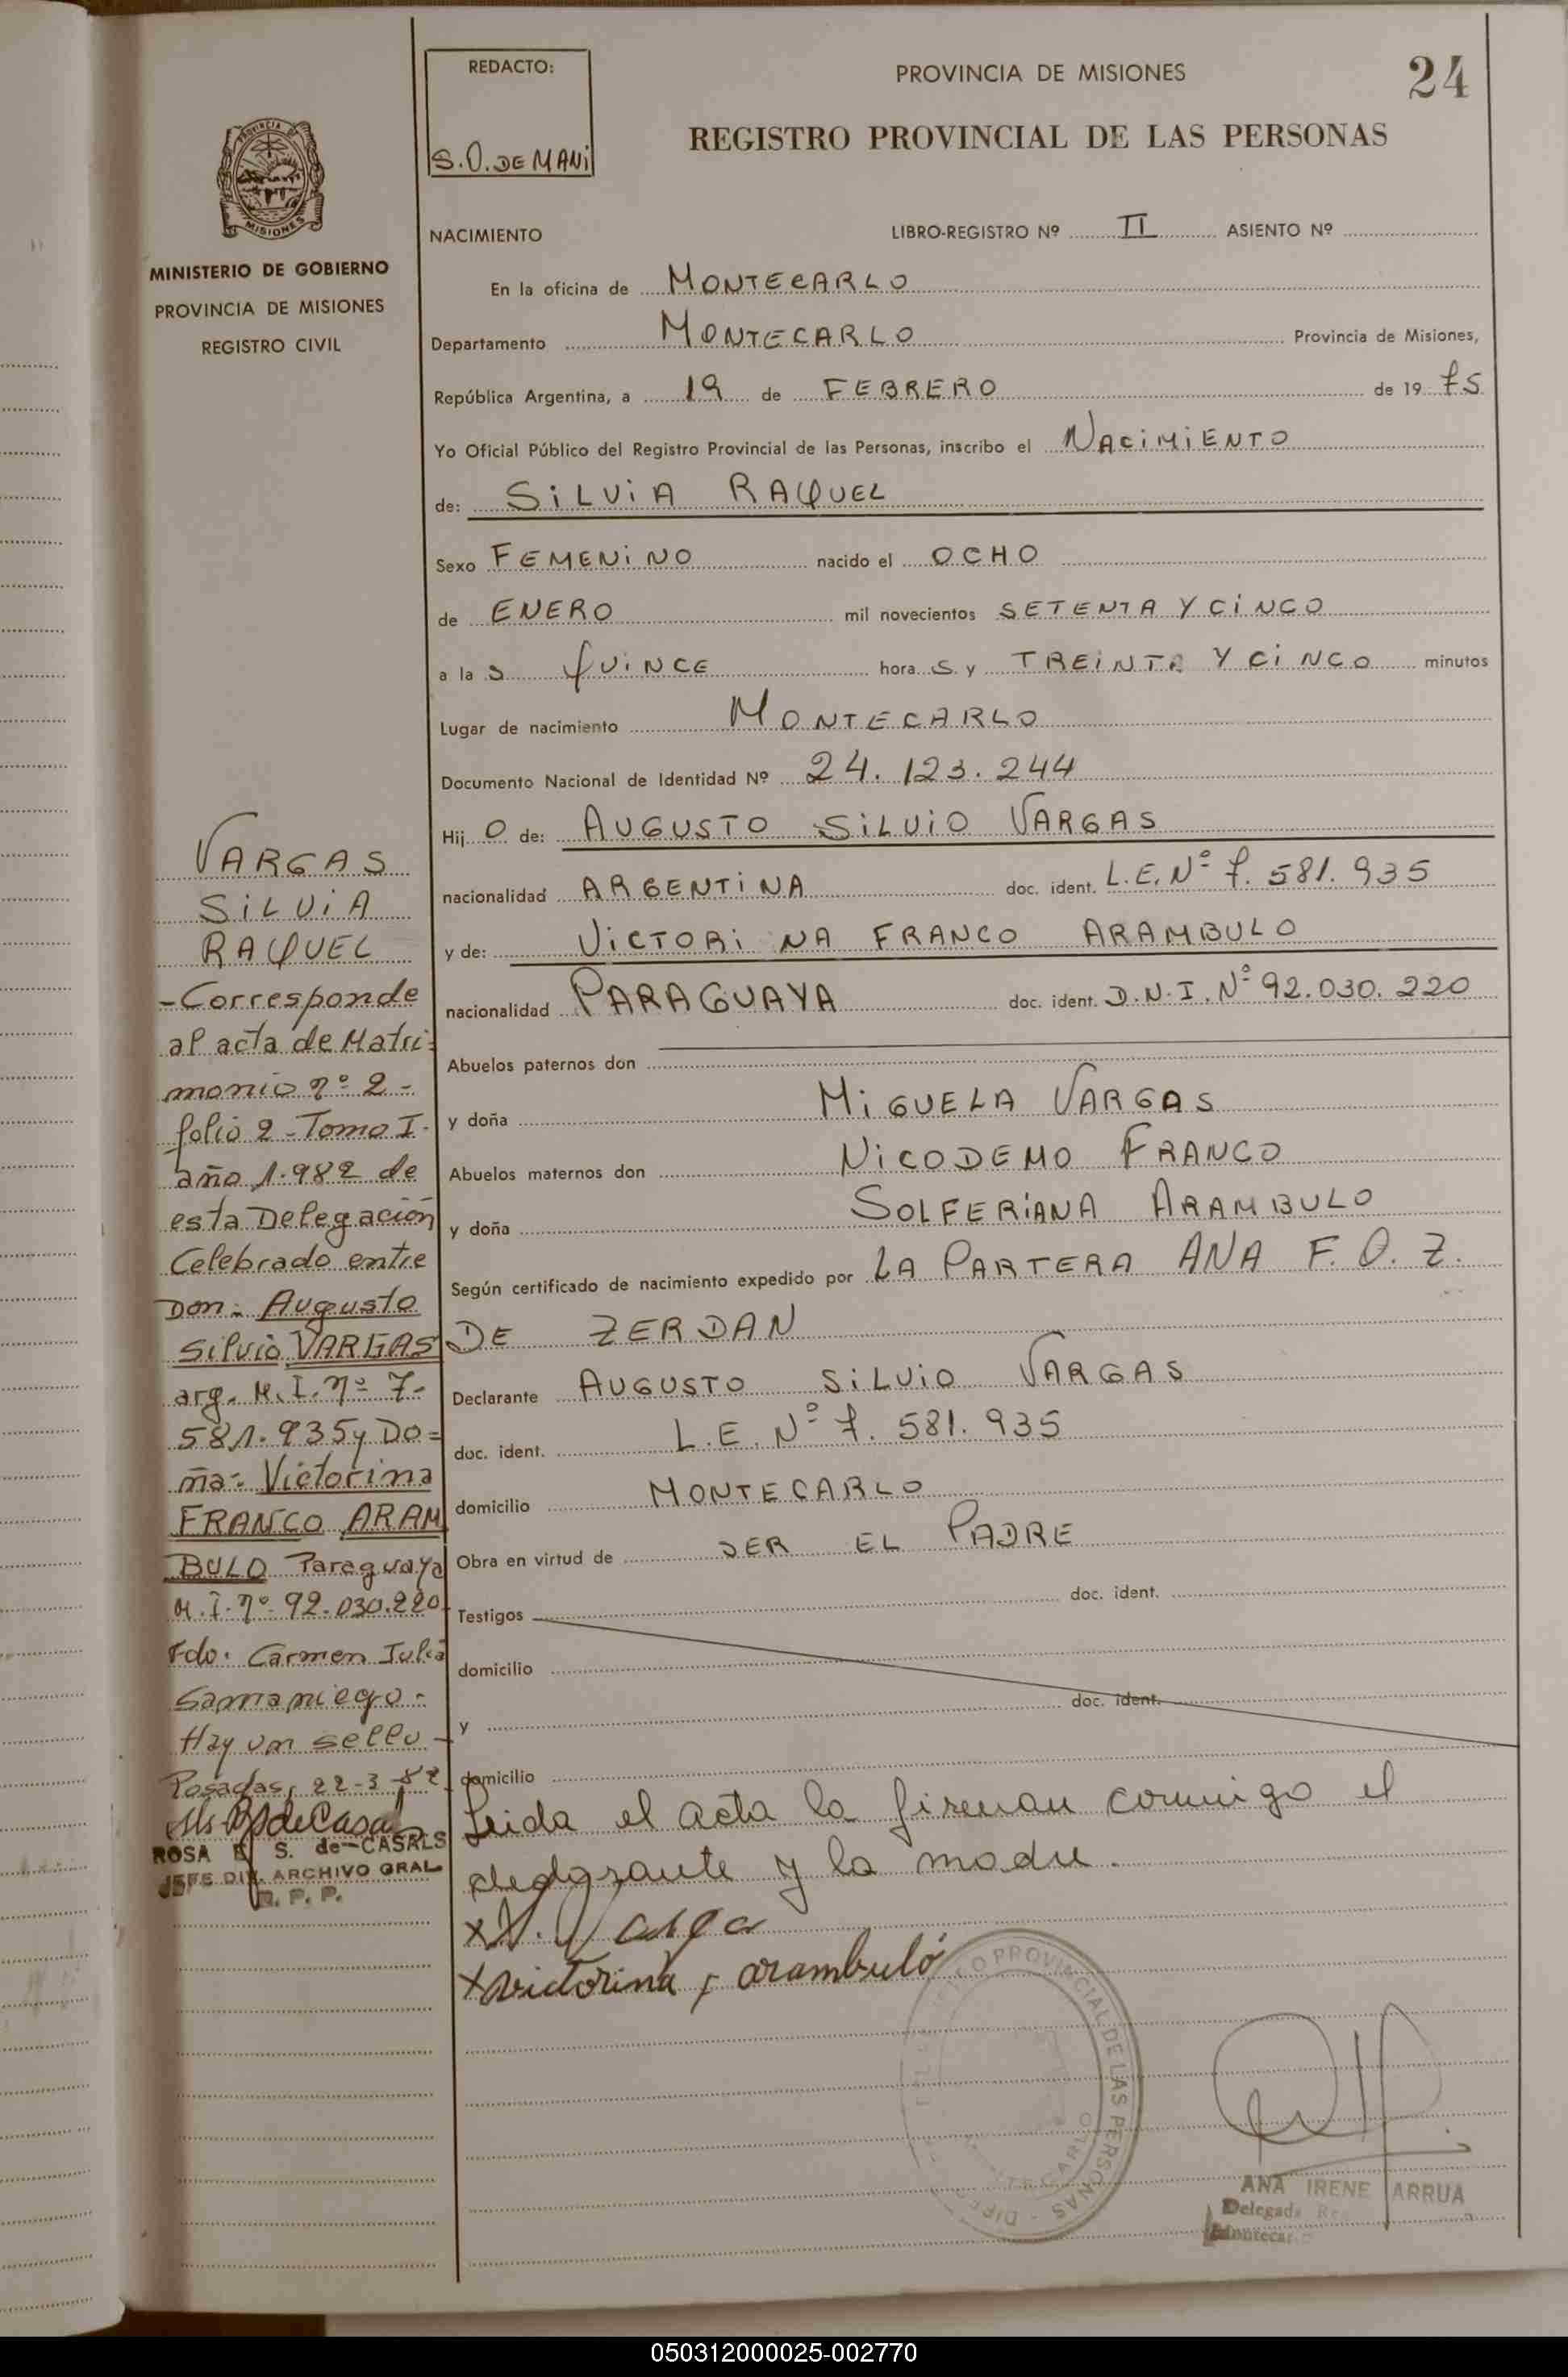 REDACTO:
S.O. DE MANI
PROVINCIA DE MISIONES
24
REGISTRO PROVINCIAL DE LAS PERSONAS
PROVINCIA DE
MISIONES
MINISTERIO DE GOBIERNO
PROVINCIA DE MISIONES
REGISTRO CIVIL
NACIMIENTO
LIBRO-REGISTRO Nº II ASIENTO Nº
En la oficina de MONTECARLO
Departamento MONTECARLO Provincia de Misiones,
República Argentina, a 19 de FEBRERO de 19 75
Yo Oficial Público del Registro Provincial de las Personas, inscribo el NACIMIENTO
de: SILVIA RAQUEL
Sexo FEMENINO nacido el OCHO
de ENERO mil novecientos SETENTA Y CINCO
a la s QUINCE hora s y TREINTA Y CINCO minutos
Lugar de nacimiento MONTECARLO
Documento Nacional de Identidad Nº 24.123.244
Hij O de: AUGUSTO SILVIO VARGAS
nacionalidad ARGENTINA doc. ident. L.E. Nº 7.581.935
y de: VICTORINA FRANCO ARAMBULO
nacionalidad PARAGUAYA doc. ident. D.N.I. Nº 92.030.220
Abuelos paternos don
y doña MIGUELA VARGAS
Abuelos maternos don NICODEMO FRANCO
y doña SOLFERIANA ARAMBULO
Según certificado de nacimiento expedido por LA PARTERA ANA F. O. Z.
DE ZERDAN
Declarante AUGUSTO SILVIO VARGAS
doc. ident. L.E. Nº 7.581.935
domicilio MONTECARLO
Obra en virtud de SER EL PADRE
Testigos doc. ident.
domicilio
y doc. ident.
domicilio
Leida el acta la firman conmigo el
declarante y la madre.
Vargas
x victorina f arambuló
VARGAS
SILVIA
RAQUEL
-Corresponde
al acta de Matri=
monio nº 2-
folio 2-Tomo I-
año 1.982 de
esta Delegación
Celebrado entre
Don: Augusto
Silvio VARGAS
arg. M.I. nº 7-
581.935 y Do=
ña: Victorina
FRANCO ARAM
BULO Paraguaya
M.I. nº 92.030.220
Fdo. Carmen Julia
Samaniego-
Hay un sello-
Posadas, 22-3-82
ROSA E. S. de CASALS
JEFE DIV. ARCHIVO GRAL
R. P. P.
PROVINCIAL DE LAS PERSONAS
ANA IRENE ARRUA
Delegada
Montecar
050312000025-002770